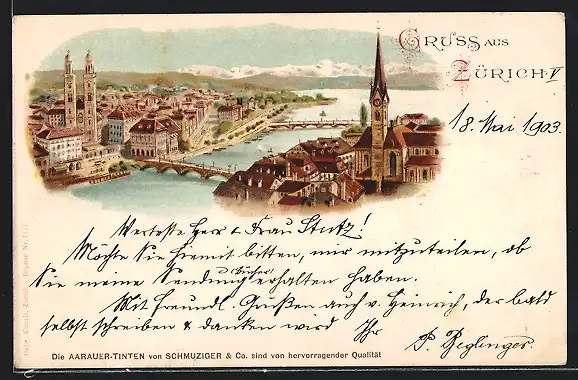 GRUSS AUS
ZÜRICH V
18. Mai 1903.
Werteste Herr & Frau Stutz!
Möchte Sie hiermit bitten, mir mitzuteilen, ob
Sie meine Sendung u. Bücher erhalten haben.
Mit freundl. Grüßen auch v. Heinrich, der bald
selbst schreiben & danken wird Ihr
P. Reglinger.
Die AARAUER-TINTEN von SCHMUZIGER & Co. sind von hervorragender Qualität